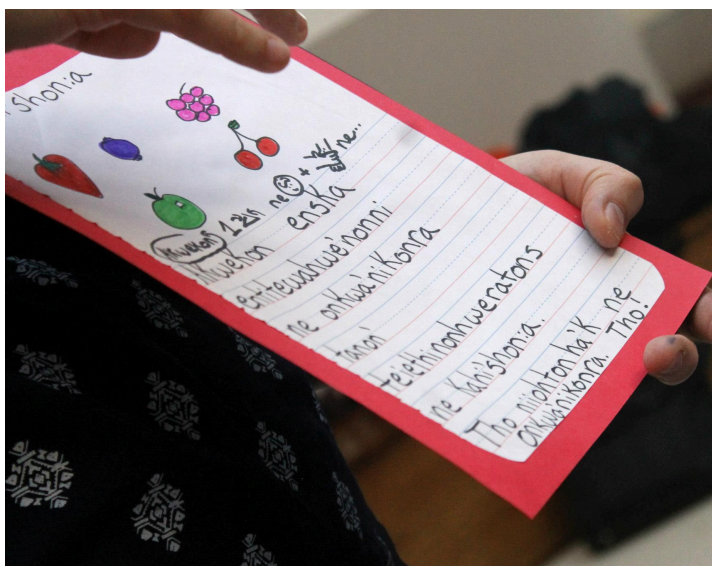 shon:a
Akwekon enska
entitewahwe'nonni
ne onkwa'nikonra
tanon'
teiethinonhweratons
ne Kahishon:a.
Tho niiohtonha'k ne
onkwa'nikonra. Tho!